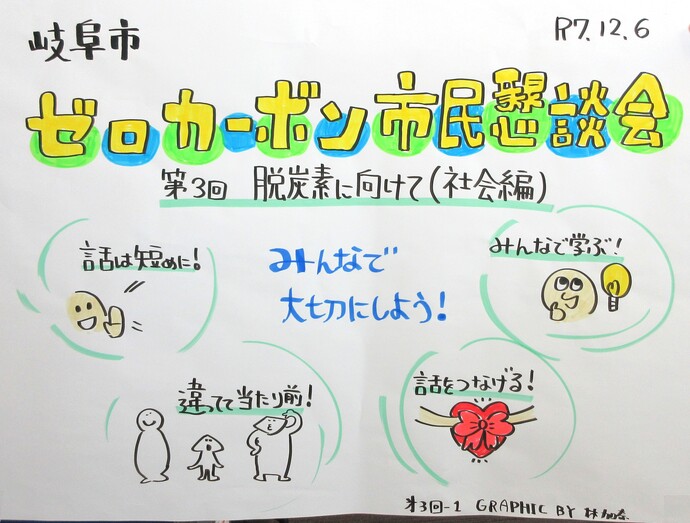 岐阜市
R7.12.6
ゼロカーボン市民懇談会
第3回 脱炭素に向けて(社会編)
話は短めに!
みんなで
大切にしよう!
みんなで学ぶ!
違ってて当たり前!
話をつなげる!
第3回-1 GRAPHIC BY 林